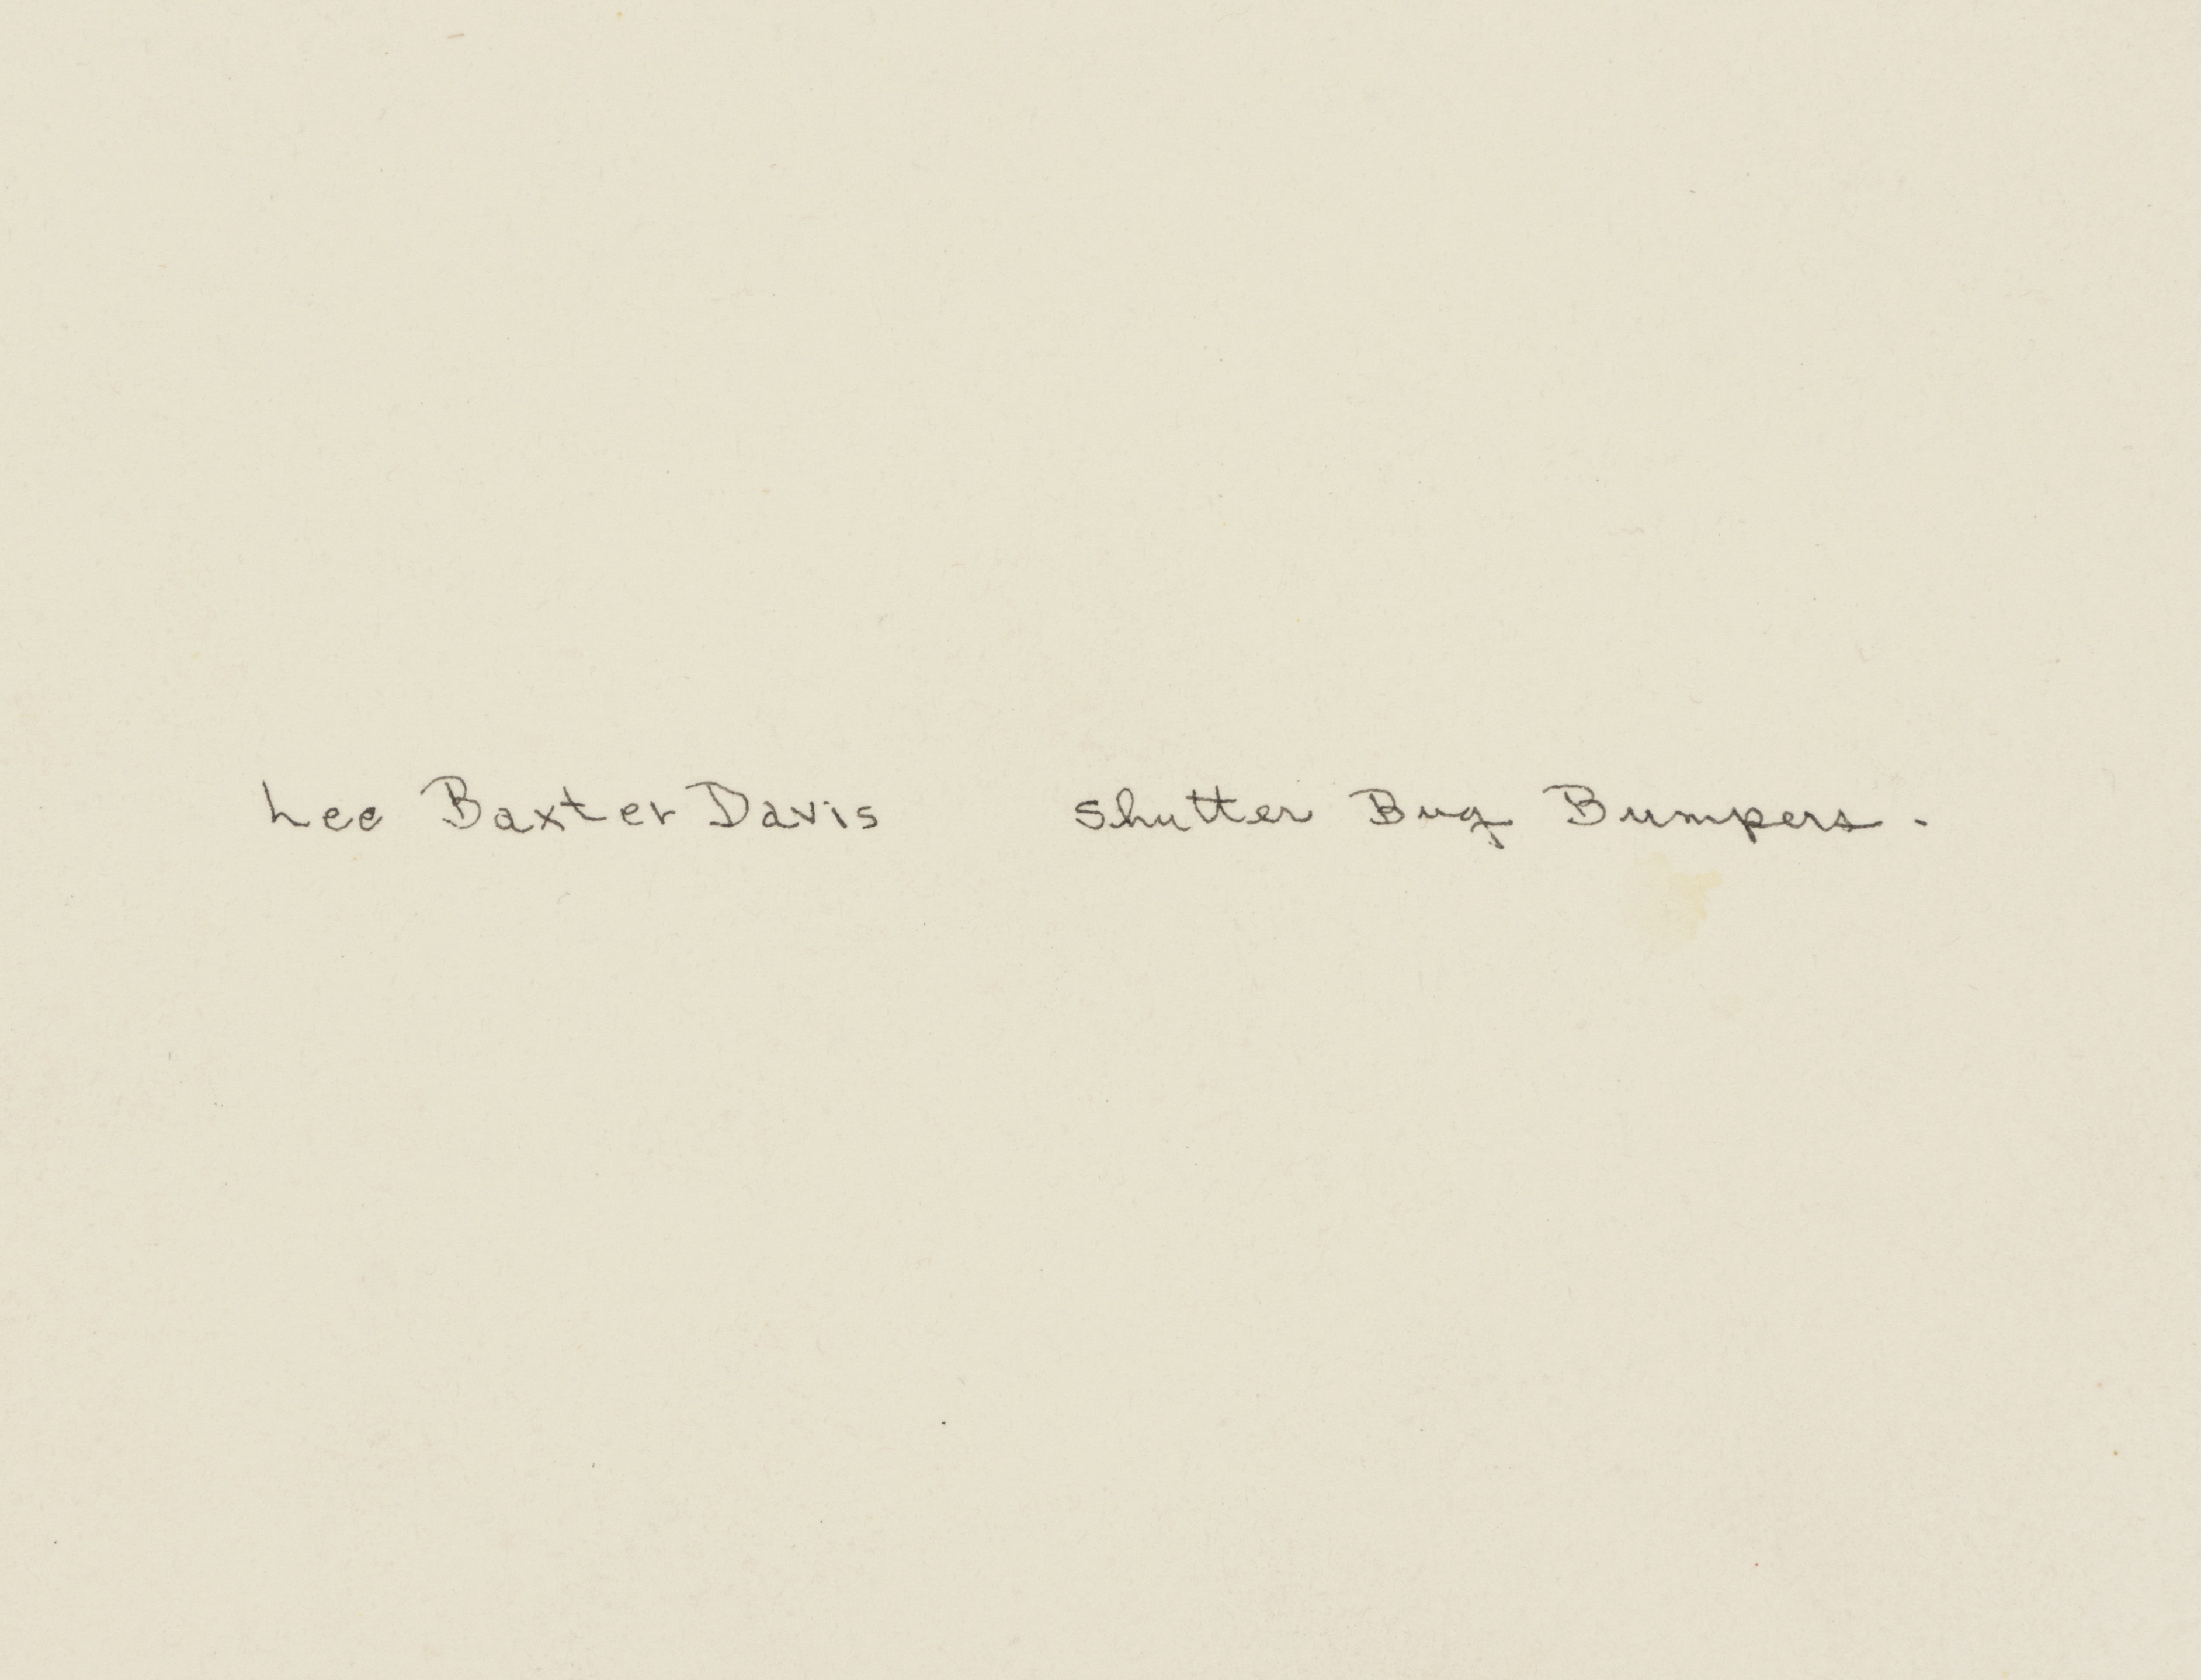 Lee Baxter Davis shutter Bug Bumpers.